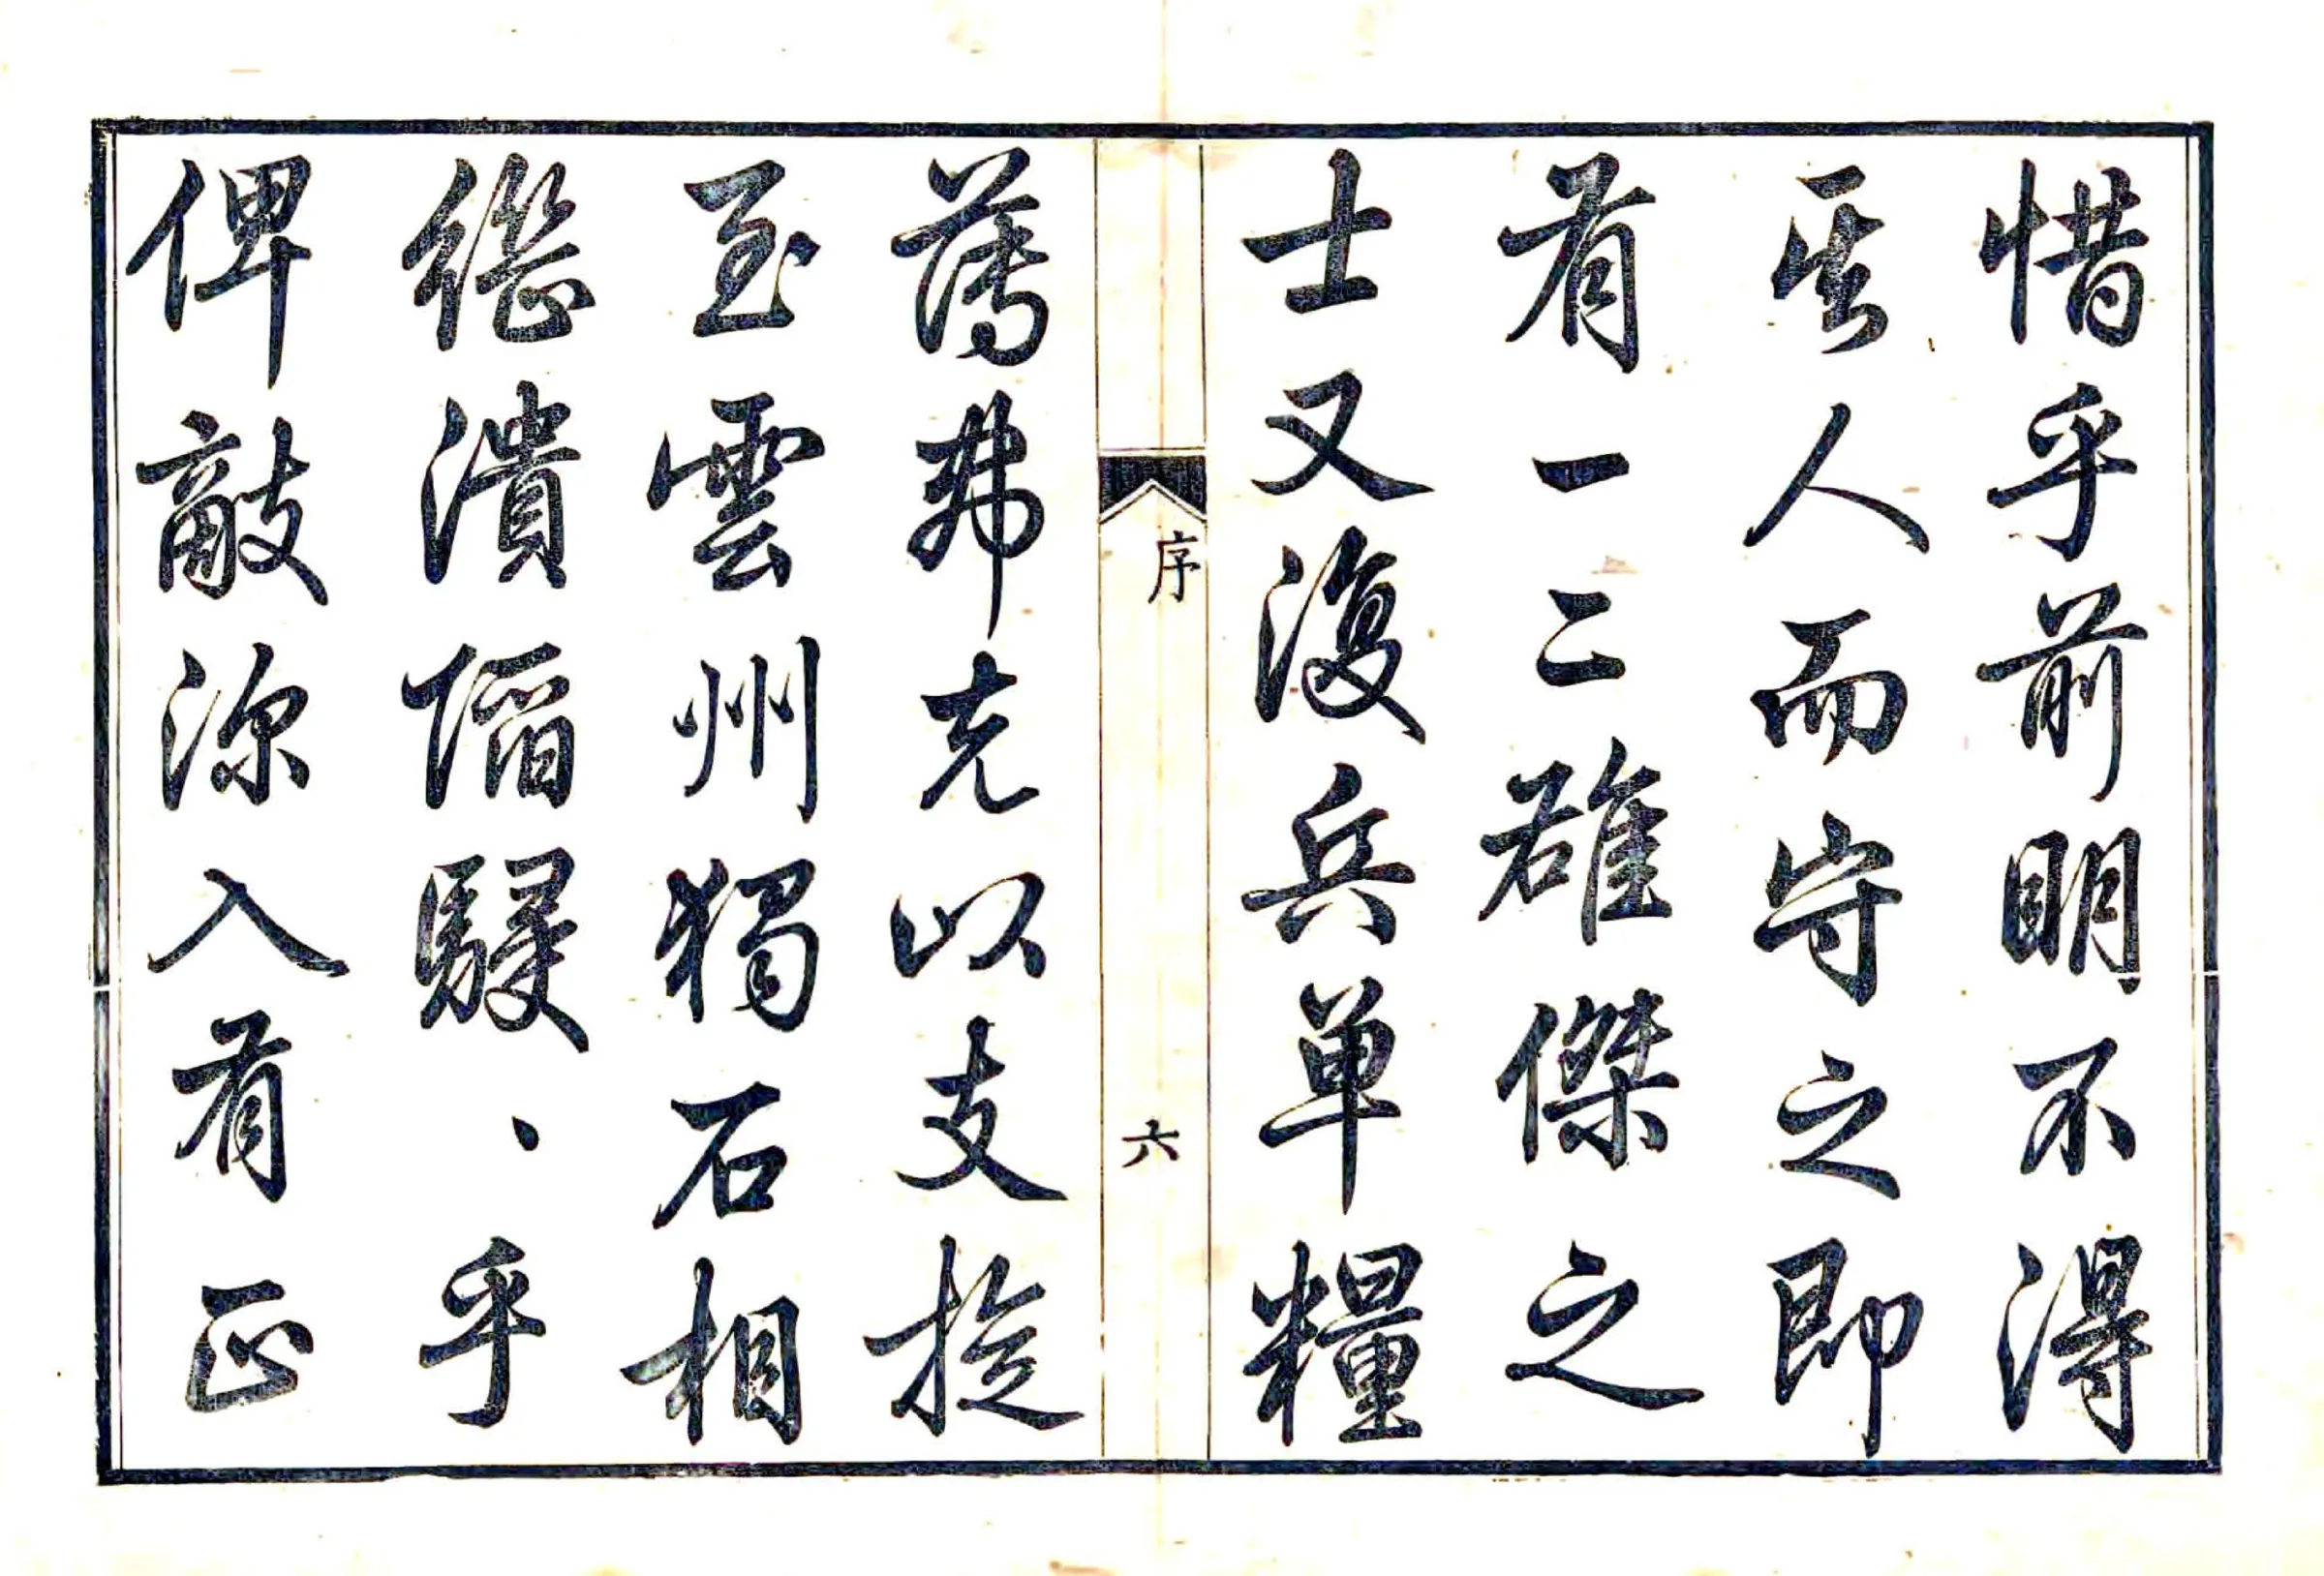 惜乎前明不得
其人而守之即
有一二雄傑之
士又復兵單糧
序 六
薄弗克以支旋
至雲州獨石相
繼潰陷駸、乎
俾敵深入有正